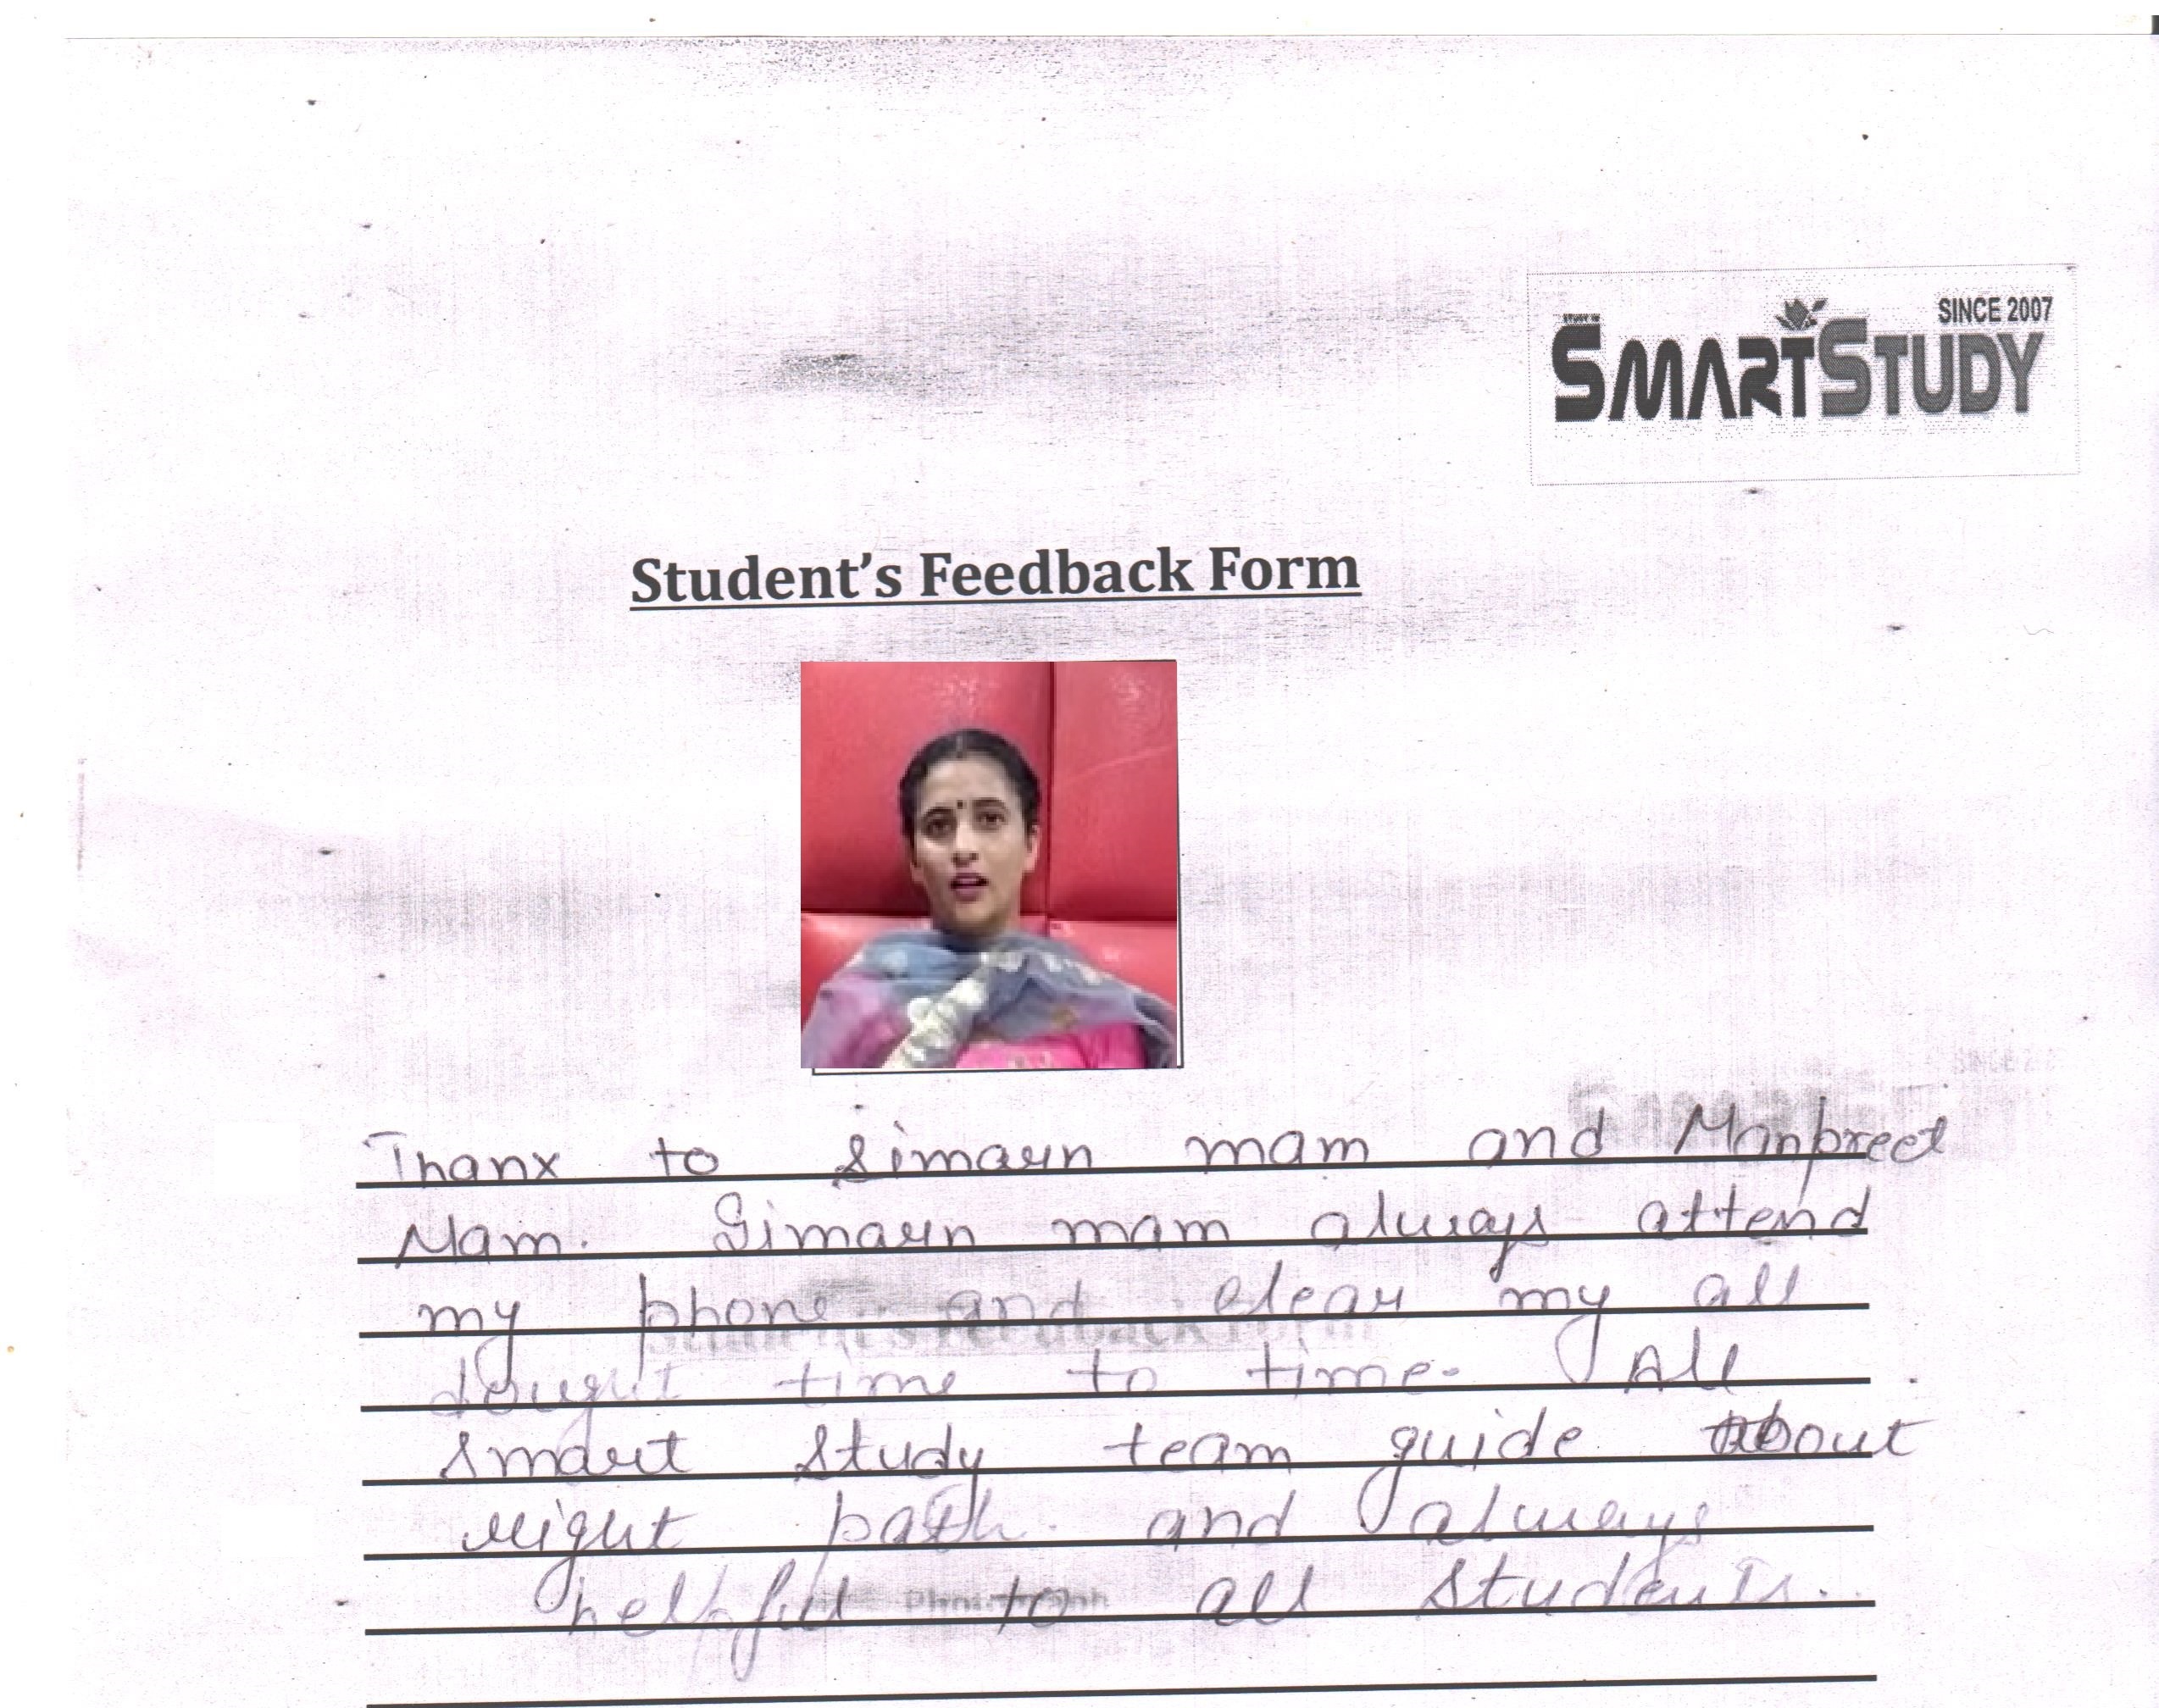 SINCE 2007
SMARTSTUDY
Student's Feedback Form
Thanx to Simarn mam and Manpreet
Mam. Simarn mam always attend
my phone and clear my all
dought time to time. All
smart study team guide about
right path and always
helpful to all students.